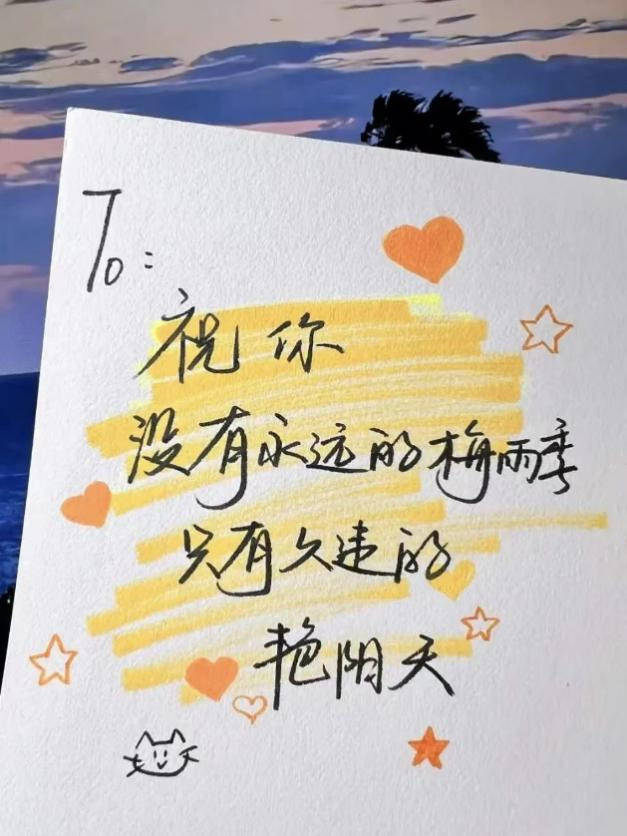 To:
祝你
没有永远的梅雨季
只有久违的
艳阳天